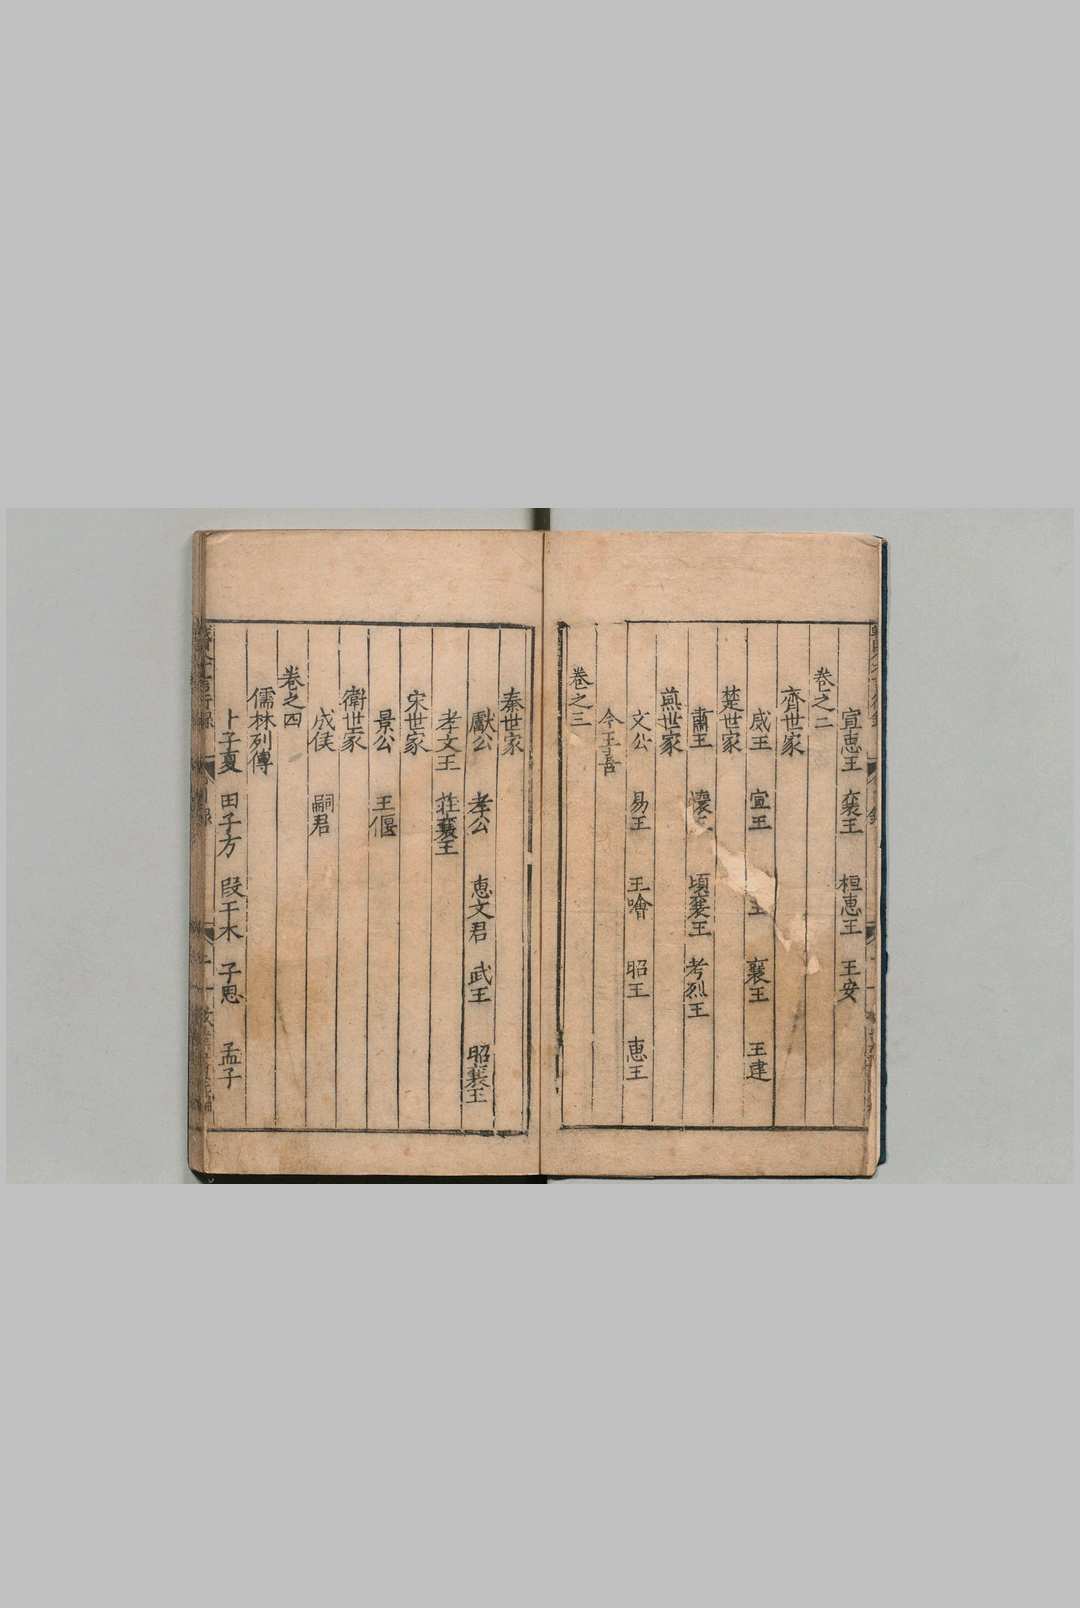 宣惠王 襄王 桓惠王 王安
卷之二
齊世家
威王 宣王 王 襄王 王建
楚世家
肅王 懷 頃襄王 考烈王
燕世家
文公 易王 王噲 昭王 惠王
今王喜
卷之三
秦世家
獻公 孝公 惠文君 武王 昭襄王
孝文王 莊襄王
宋世家
景公 王偃
衛世家
成侯 嗣君
卷之四
儒林列傳
卜子夏 田子方 段干木 子思 孟子